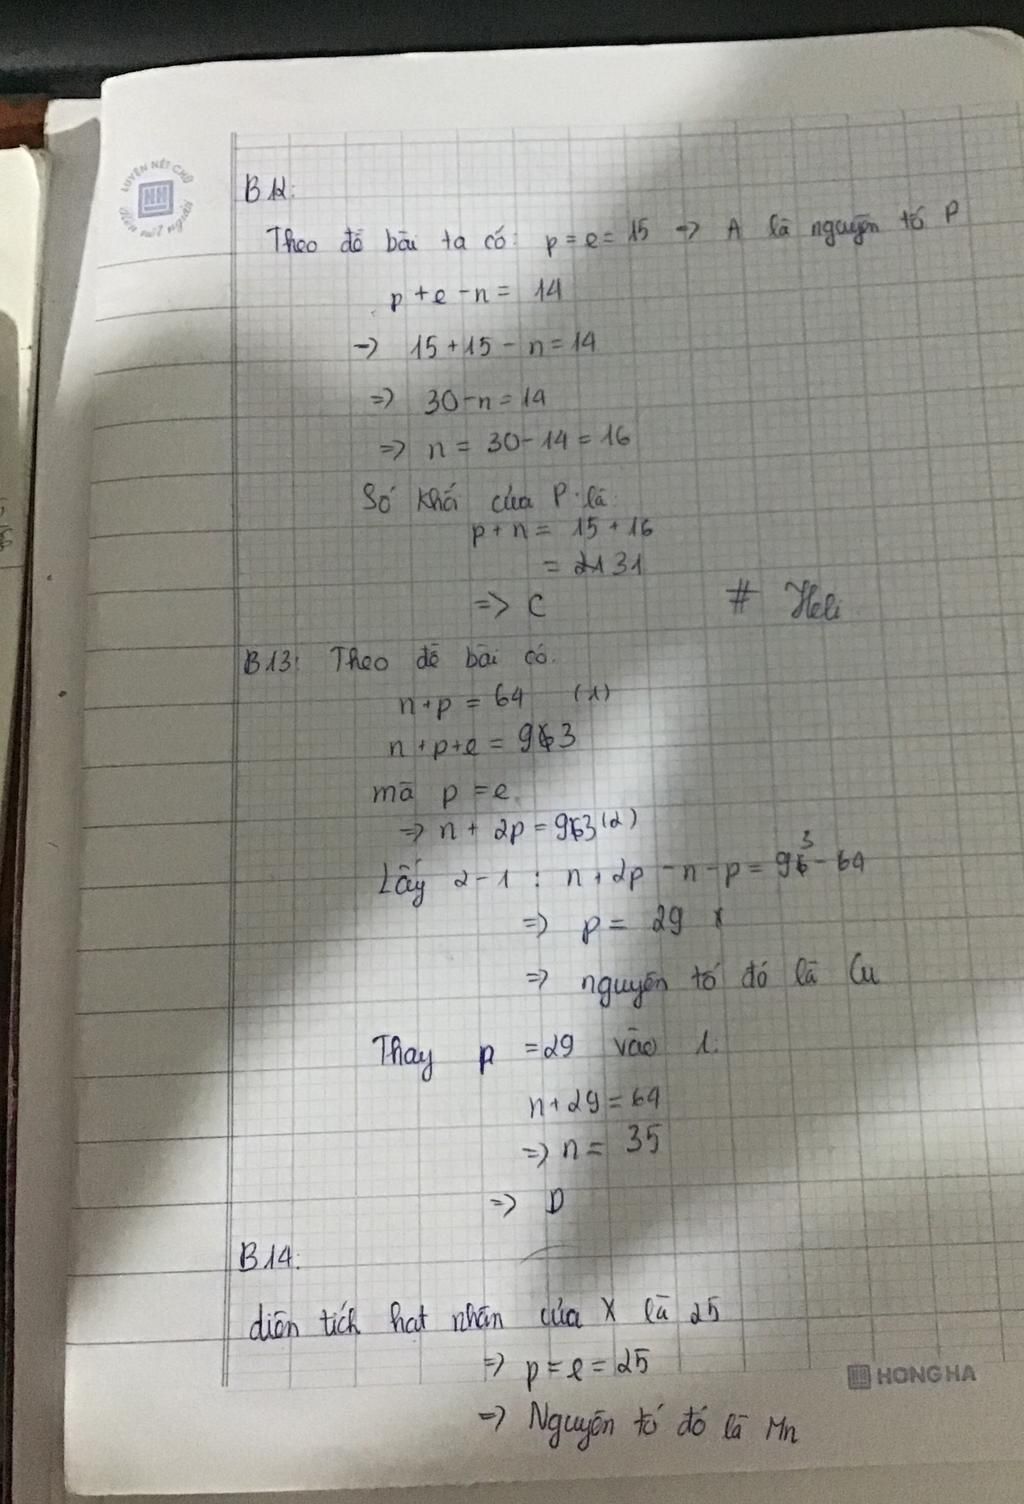 LUYỆN NÉT CHỮ
HH
Rèn nết người
B12:
Theo đề bài ta có: p = e = 15 => A là nguyên tố P
p + e - n = 14
=> 15 + 15 - n = 14
=> 30 - n = 14
=> n = 30 - 14 = 16
Số khối của P là:
p + n = 15 + 16
= 31
=> C
# Heli
B13: Theo đề bài có:
n + p = 64 (1)
n + p + e = 93
mà p = e
=> n + 2p = 93 (2)
Lấy 2 - 1 : n + 2p - n - p = 93 - 64
=> p = 29
=> nguyên tố đó là Cu
Thay p = 29 vào 1:
n + 29 = 64
=> n = 35
=> D
B14:
điện tích hạt nhân của X là 25
=> p = e = 25
HONG HA
=> Nguyên tố đó là Mn